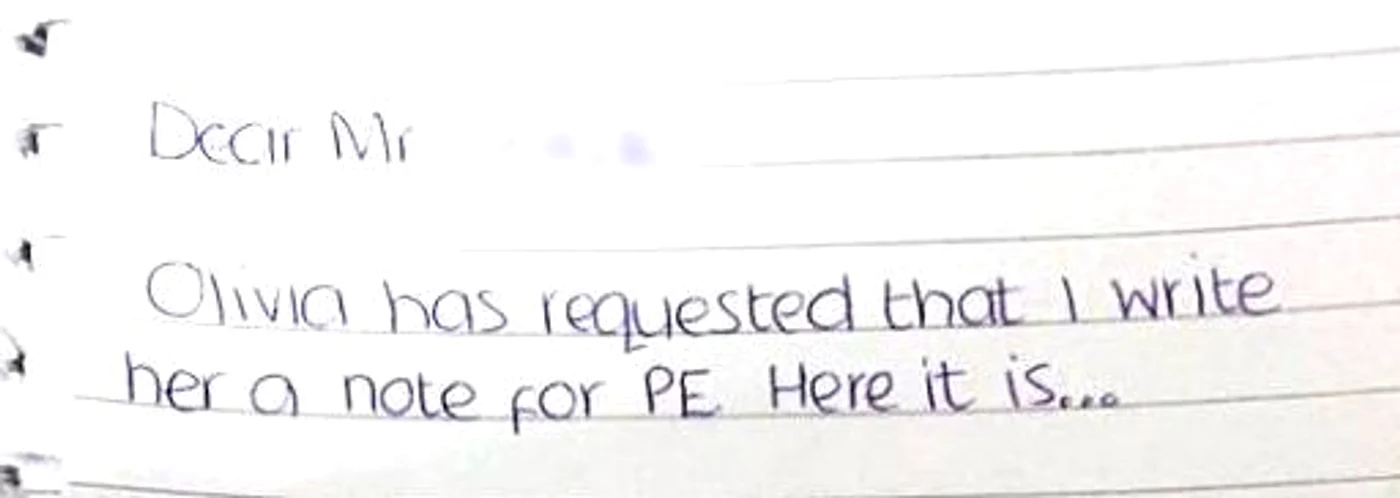 Dear Mr
Olivia has requested that I write
her a note for PE Here it is...